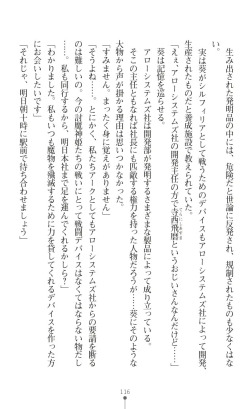 生み出された発明品の中には、危険だと世論に批判され、規制されたものも少なくはな
い。
実は葵がシルフィリアとして戦うためのデバイスもアローシステムズ社によって開発、
生産されたものだと養成施設で教えられていた。
「ええ、アローシステムズ社の開発主任の方で寺西飛磨というおじいさんなんだけど……」
葵は記憶を巡らせる。
アローシステムズ社は開発部が実現するさまざまな製品によって成り立っている。
そこの主任ともなれば社長にも匹敵する権力を持った人物だろうが……葵にそのような
大物から声が掛かる理由は思いつかなかった。
「すみません、まったく身に覚えがありません」
「そうよね……。とにかく、私たちアークとしてもアローシステムズ社からの要請を断る
のは難しいの。今の討魔神姫たちの戦いにとって戦闘デバイスはなくてはならない物だし
……。私も同行するから、明日本社まで足を運んでくれるかしら？」
「わかりました。私もいつも魔物を殲滅するために力を貸してくれるデバイスを作った方
にお会いしたいです」
「それじゃ、明日朝十時に駅前で待ち合わせましょう」
116